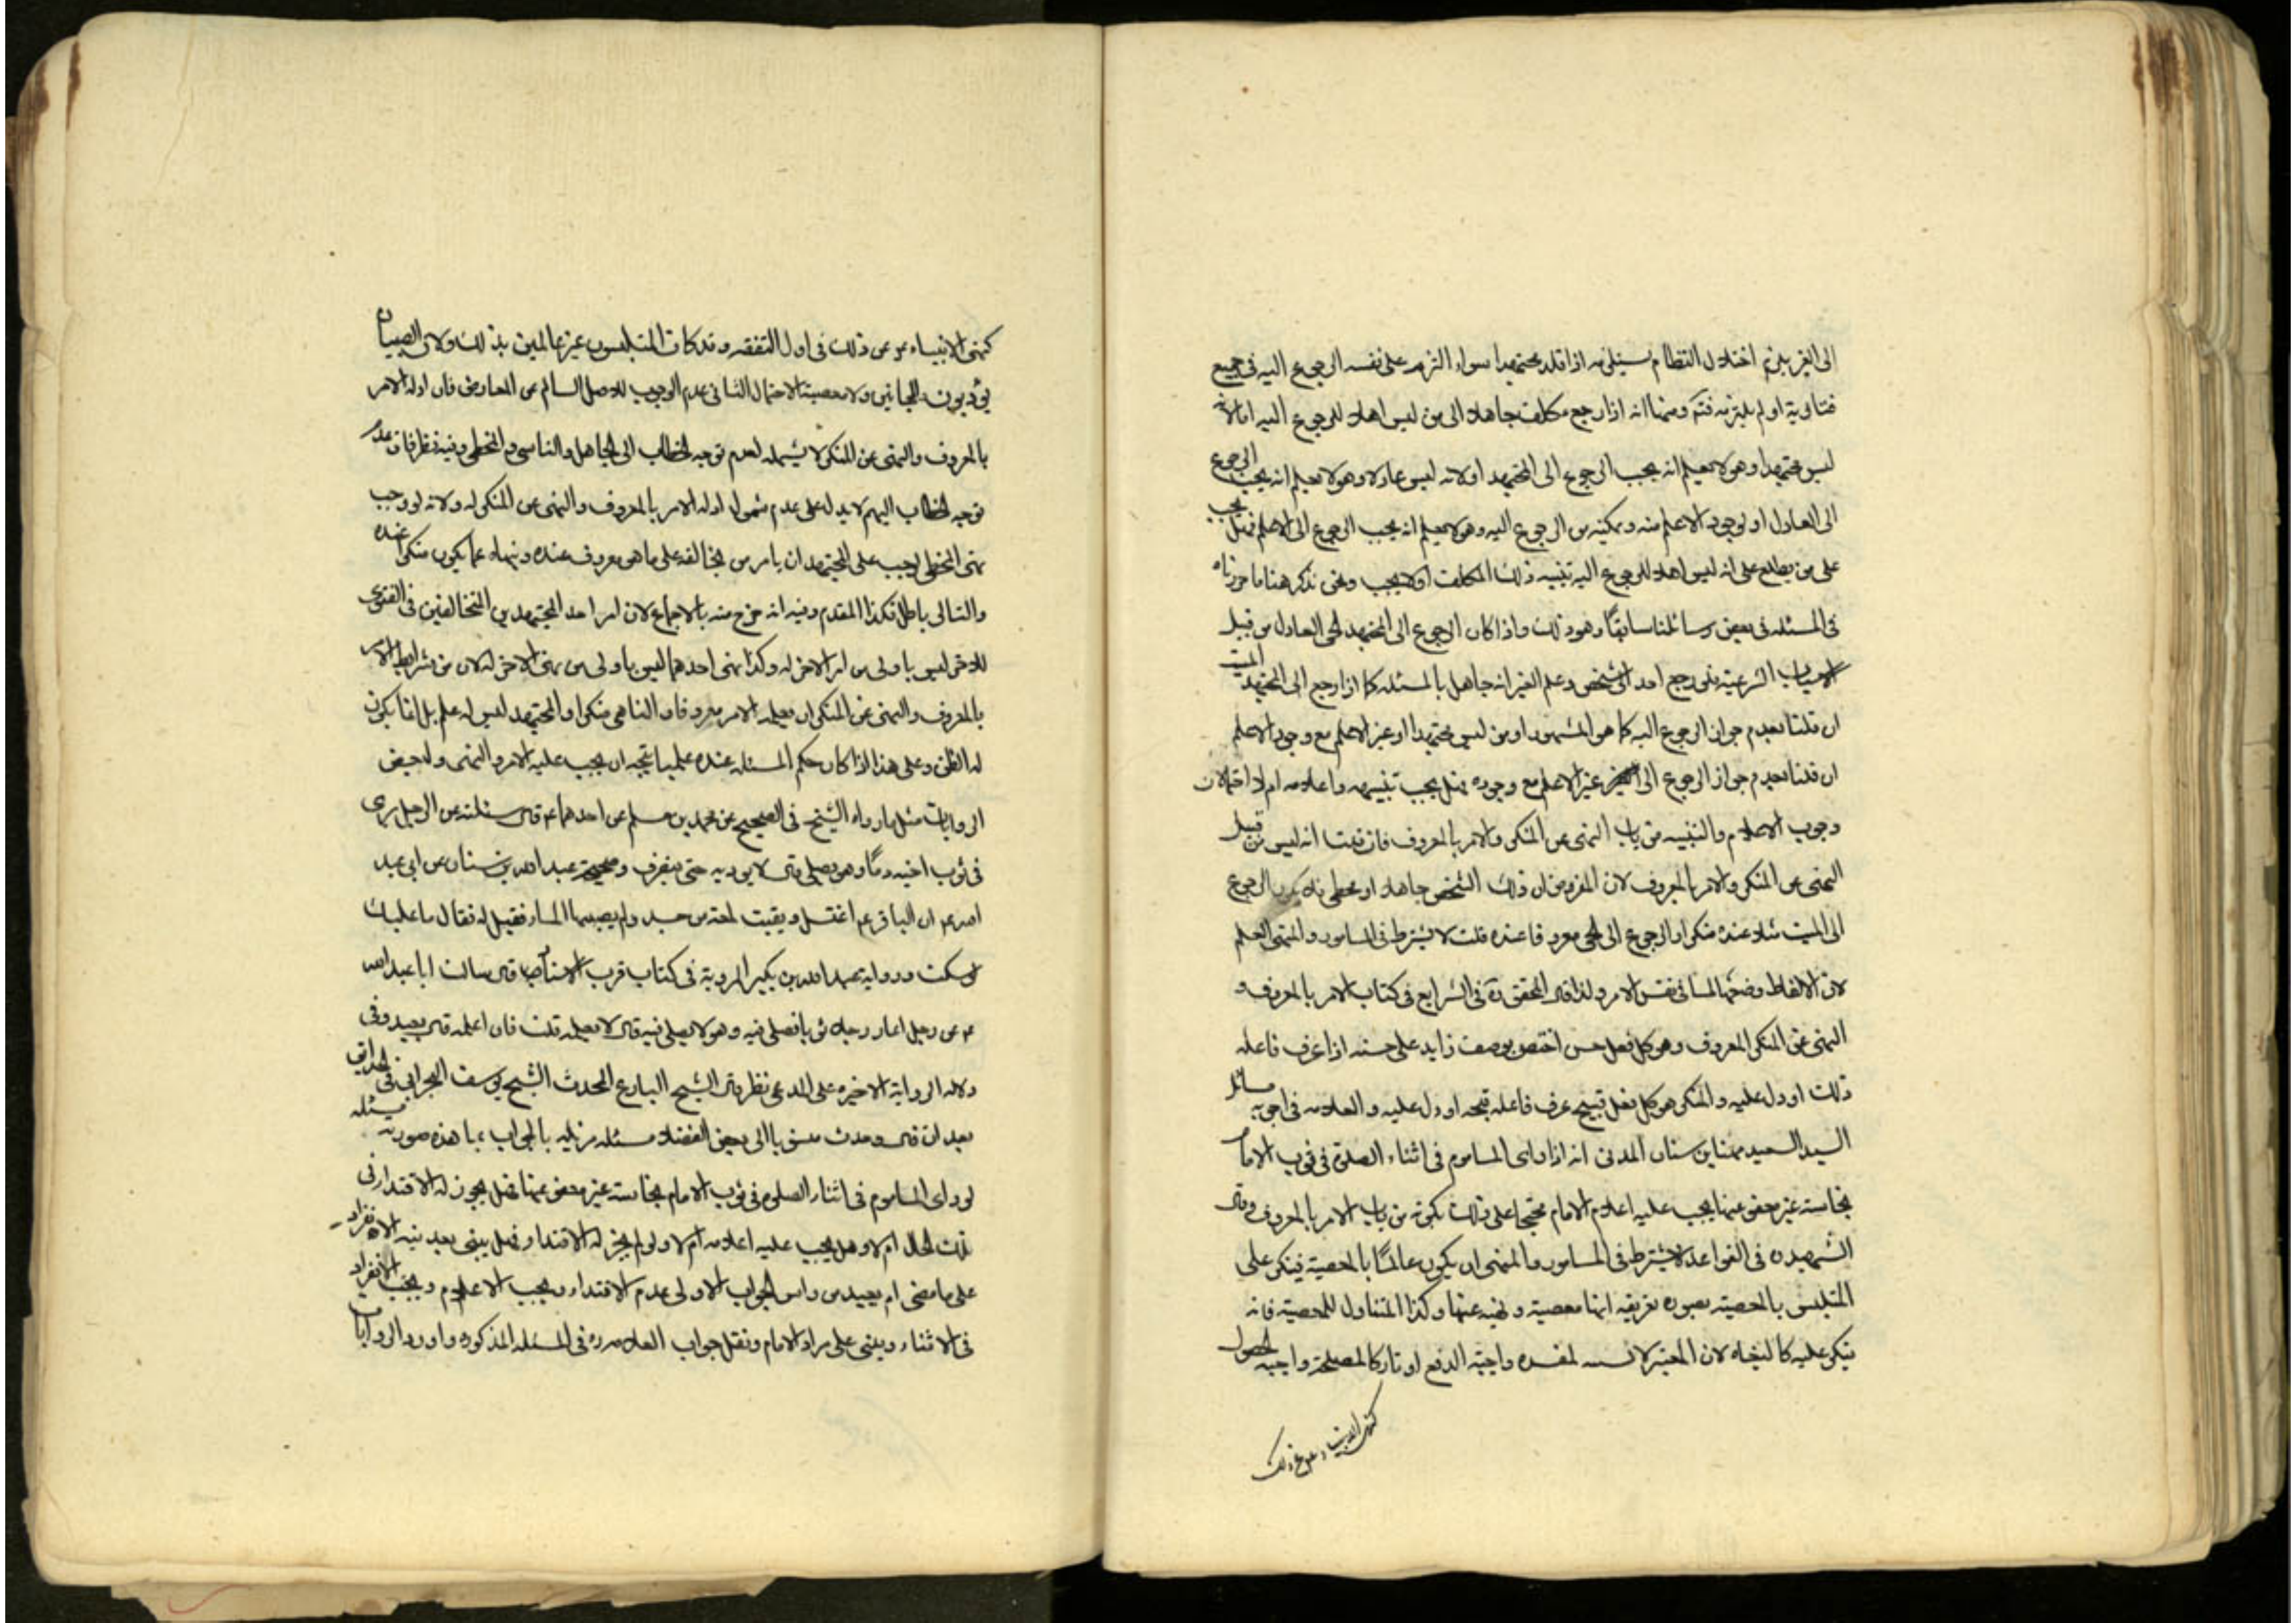 الى الغير يلزم اختلال النظام سيلزمه اذا قلد مجتهدا سواء التزم على نفسه الرجوع اليه في جميع
فتاويه او لم يلتزمه فتم ومنها انه اذا رجع مكلف جاهلا الى من ليس اهلا للرجوع اليه اما لانه
ليس مجتهدا وهو لا يعلم انه يجب الرجوع الى المجتهد او لانه ليس عادلا وهو لا يعلم انه يجب الرجوع
الى العادل او لوجود الاعلم منه وتمكنه من الرجوع اليه وهو لا يعلم انه يجب الرجوع الى الاعلم فهل يجب
على من يطلع على انه ليس اهلا للرجوع اليه تنبيه ذلك المكلف او لا يجب ونحن نذكر هنا ما حررناه
في المسئله في بعض رسائلنا سابقا وهو ذلك واذا كان الرجوع الى المجتهد الحي العادل من قبيل
الاسباب الشرعية فلو رجع احد الى شخص وعلم الغير انه جاهل بالمسئله كما اذا رجع الى المجتهد الميت
ان قلنا بعدم جواز الرجوع اليه كما هو المشهور او من ليس مجتهدا او غير الاعلم مع وجود الاعلم
ان قلنا بعدم جواز الرجوع الى غير الاعلم مع وجوده فهل يجب تنبيهه واعلامه ام لا احتمالان
وجوب الاعلام والتنبيه من باب النهى عن المنكر والامر بالمعروف فان قلت انه ليس من قبيل
النهى عن المنكر والامر بالمعروف لان المفروض ان ذلك الشخص جاهل او مخطى فلا يكون الرجوع
الى الميت مثلا عنده منكرا والرجوع الى الحي معروفا عنده قلت لا يشترط في المامور والمنهى العلم
لان الالفاظ وضعها لما في نفس الامر ولذا قال المحقق ره في الشرايع في كتاب الامر بالمعروف و
النهى عن المنكر المعروف وهو كل فعل حسن اختص بوصف زايد على حسنه اذا عرف فاعله
ذلك او دل عليه والمنكر هو كل فعل قبيح عرف فاعله قبحه او دل عليه والعلامه في اجوبه مسائل
السيد السعيد مهنا بن سنان المدنى انه اذا راى الماموم في اثناء الصلوة في ثوب الامام
نجاسة غير معفو عنها يجب عليه اعلام الامام محتجا على ذلك بكونه من باب الامر بالمعروف وقال
الشهيد ره في القواعد لا يشترط في المامور والمنهى ان يكون عالما بالمعصية فينكر على
المتلبس بالمعصية بصوره تعريفه انها معصية ونهيه عنها وكذا المتناول للمعصية فانه
ينكر عليه كالبغاه لان المعتبر لمفسده واجبة الدفع او تاركا لمصلحة واجبه الحصول
كنهى الانبياء ع عن ذلك
كنهى الانبياء ع عن ذلك في اول التفقه وقد كان المتلبسون غير عالمين بذلك ولان الصبيان
يؤدبون والمجانين ولا معصية الاحتمال الثاني عدم الوجوب للاصل السالم عن المعارض فان ادله الامر
بالمعروف والنهى عن المنكر لا يشمله لعدم توجه الخطاب الى الجاهل والناسى والمخطى وفيه نظر فان عدم
توجه الخطاب اليهم لا يدل على عدم شمول ادله الامر بالمعروف والنهى عن المنكر له ولانه لو وجب
نهى المخطى لوجب على المجتهد ان يامر من يخالفه على ما هو معروف عنده وينهاه عما يكون منكرا عنده
والتالى باطل فكذا المقدم وفيه انه خرج منه بالاجماع لان امر احد المجتهدين المتخالفين في الفتوى
للاخر ليس باولى من امر الاخر له وكذا نهى احدهما ليس باولى من نهى الاخر له لان من شرايط الامر
بالمعروف والنهى عن المنكر ان يعلمه الامر معروفا والناهى منكرا والمجتهد ليس له علم بل انما يكون
له الظن وعلى هذا اذا كان حكم المسئله عنده علميا يتجه ان يجب عليه الامر والنهى ولبعض
الروايات مثل ما رواه الشيخ في الصحيح عن محمد بن مسلم عن احدهما ع قال سئلته عن الرجل يرى
في ثوب اخيه دما وهو يصلى قال لا يوذيه حتى ينصرف وصحيحة عبد الله بن سنان عن ابى عبد
الله ع ان الباقر ع اغتسل وبقيت لمعة من جسده لم يصبها الماء فقيل له فقال ما عليك
لو سكت وروايه عبد الله بن بكير المروية في كتاب قرب الاسناد قال سالت ابا عبد الله
ع عن رجل اعار رجلا ثوبا فصلى فيه وهو لا يصلى فيه قال لا يعلمه قلت فان اعلمه قال يعيد وفى
دلاله الرواية الاخيره على المدعى نظر قال الشيخ البارع المحدث الشيخ يوسف البحراني في الحدائق
بعد ان قال وجدت منسوبا الى بعض الفضلا مسئله مذيله بالجواب بما هذه صورته مسئله
لو راى الماموم في اثناء الصلوه في ثوب الامام نجاسة غير معفو عنها فهل يجوز له الاقتداء في
تلك الحال ام لا وهل يجب عليه اعلامه ام لا ولو لم يجز له الاقتداء فهل يبنى بعد نيه الانفراد
على ما مضى ام يعيد من راس الجواب الاولى عدم الاقتداء ويجب الاعلام ويجب الانفراد
في الاثناء ويبنى على قراءة الامام ونقل جواب العلامه ره في المسئله المذكوره واورد الروايات